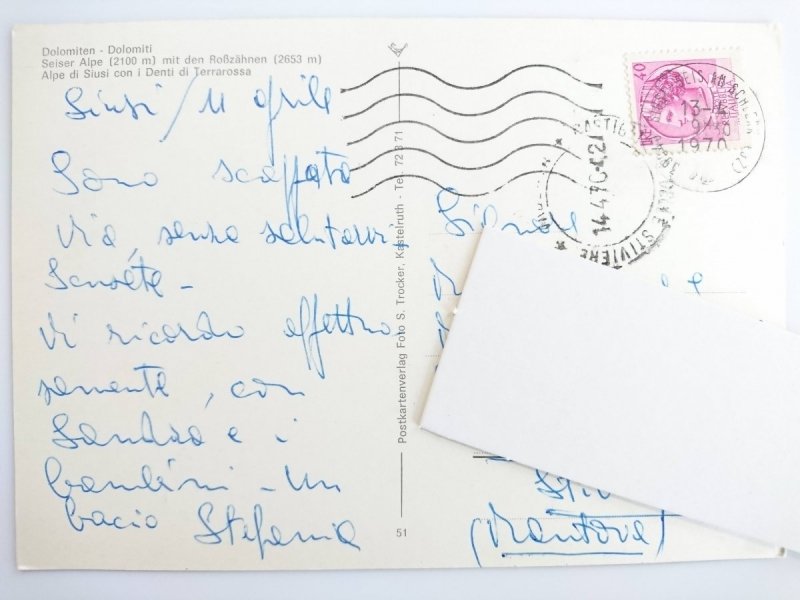 Dolomiten - Dolomiti
Seiser Alpe (2100 m) mit den Roßzähnen (2653 m)
Alpe di Siusi con i Denti di Terrarossa
Siusi / 11 aprile
Sono scappata
via, senza salutarvi
Scusate -
Vi ricordo affettuo
samente, con
Sandra e i
bambini - Un
bacio Stefania
Postkartenverlag Foto S. Trocker, Kastelruth - Tel. 72 3 71
51
40
13-4
1970
14.4.70
STIVIERE
(Mantova)